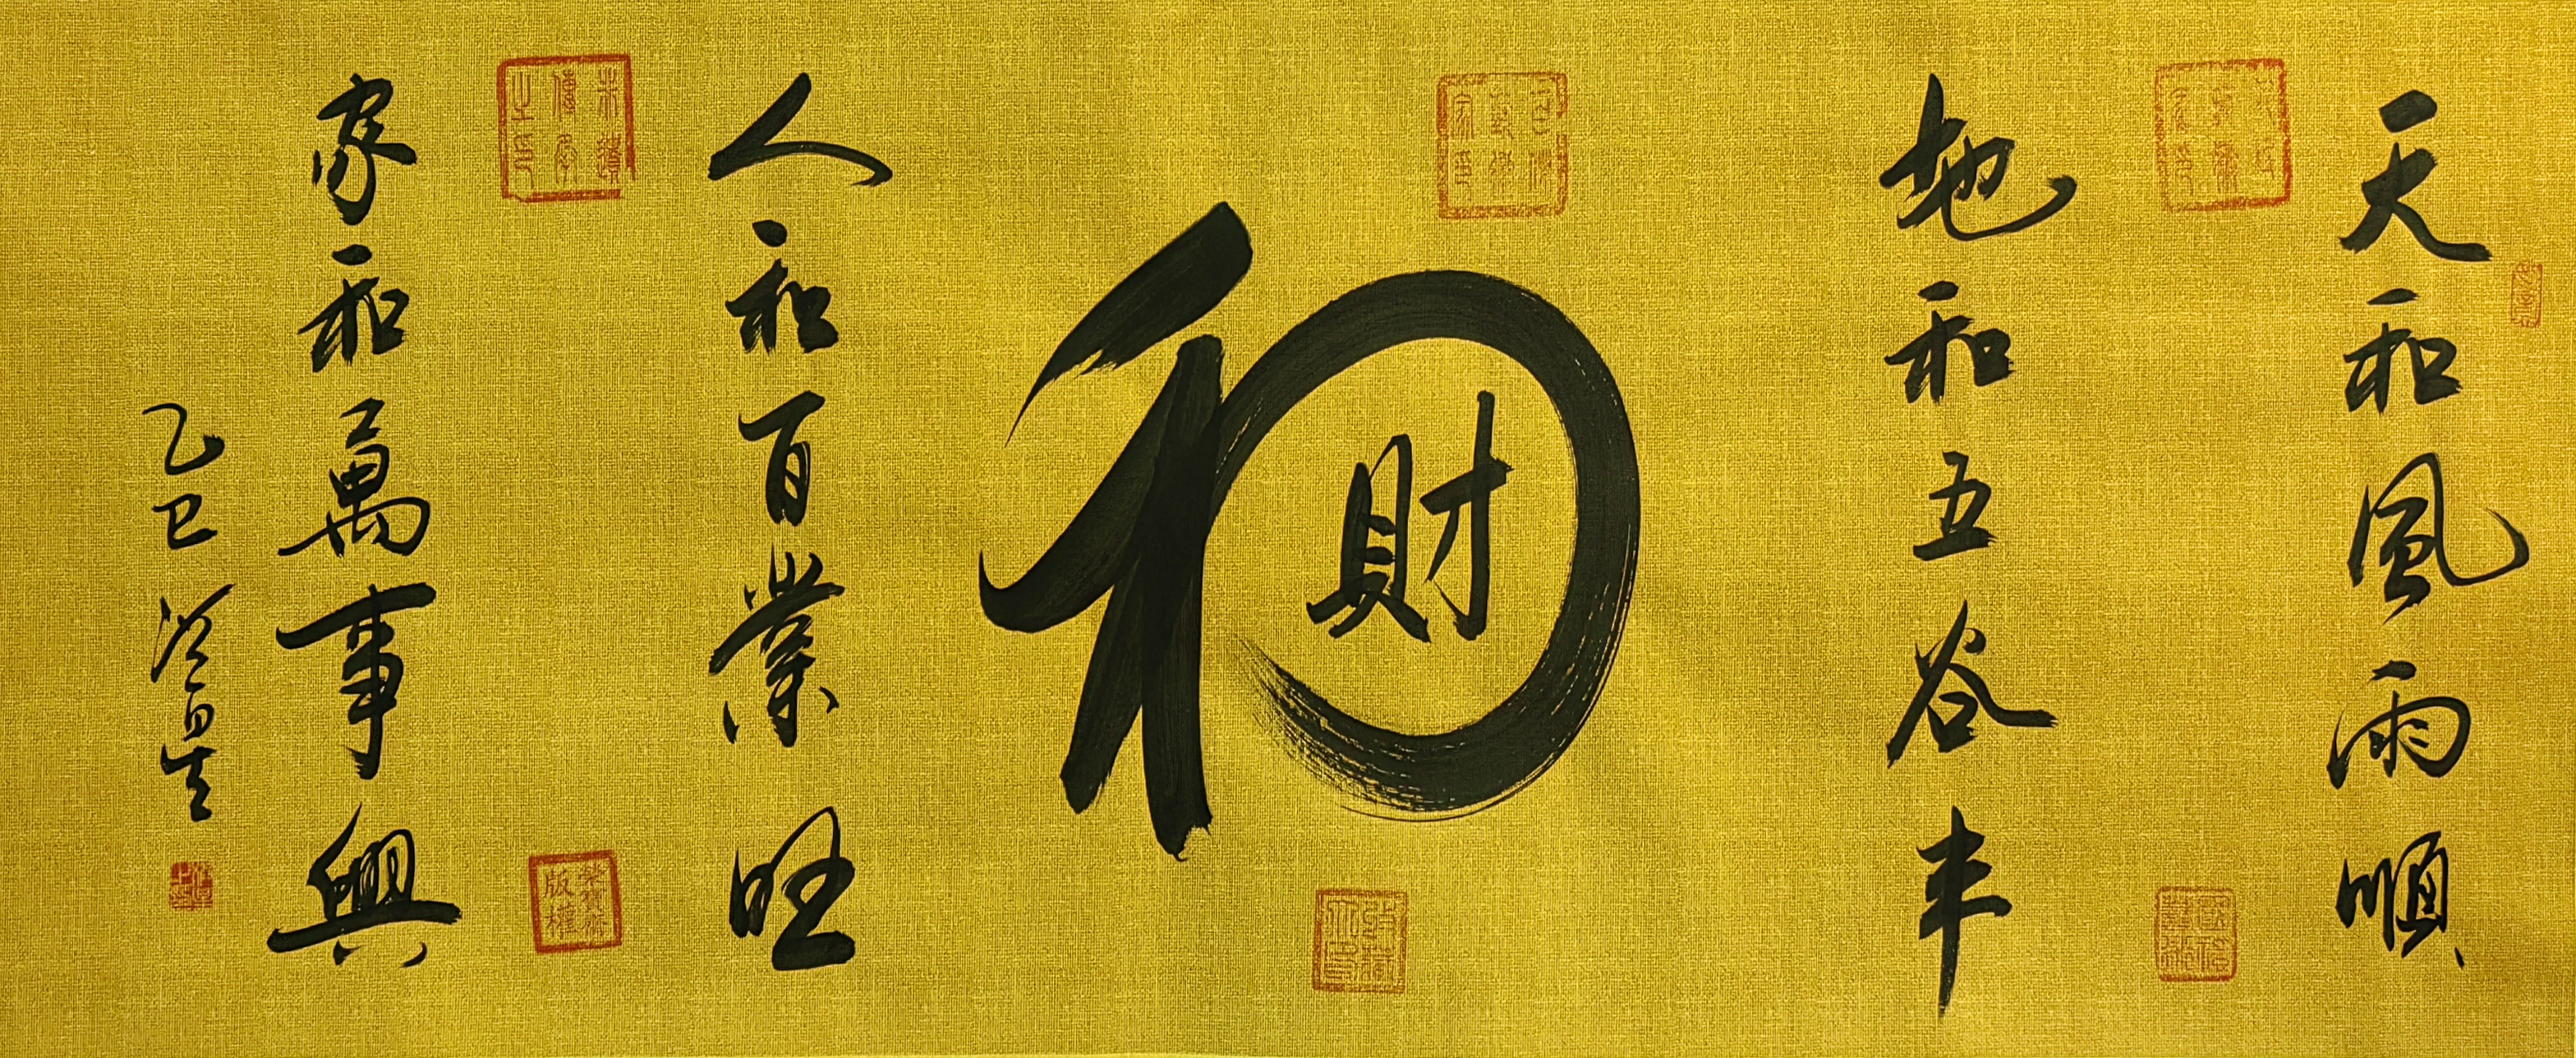 天和風雨順
地和五谷丰
和
財
人和百業旺
家和萬事興
乙巳
榮寶齋版權